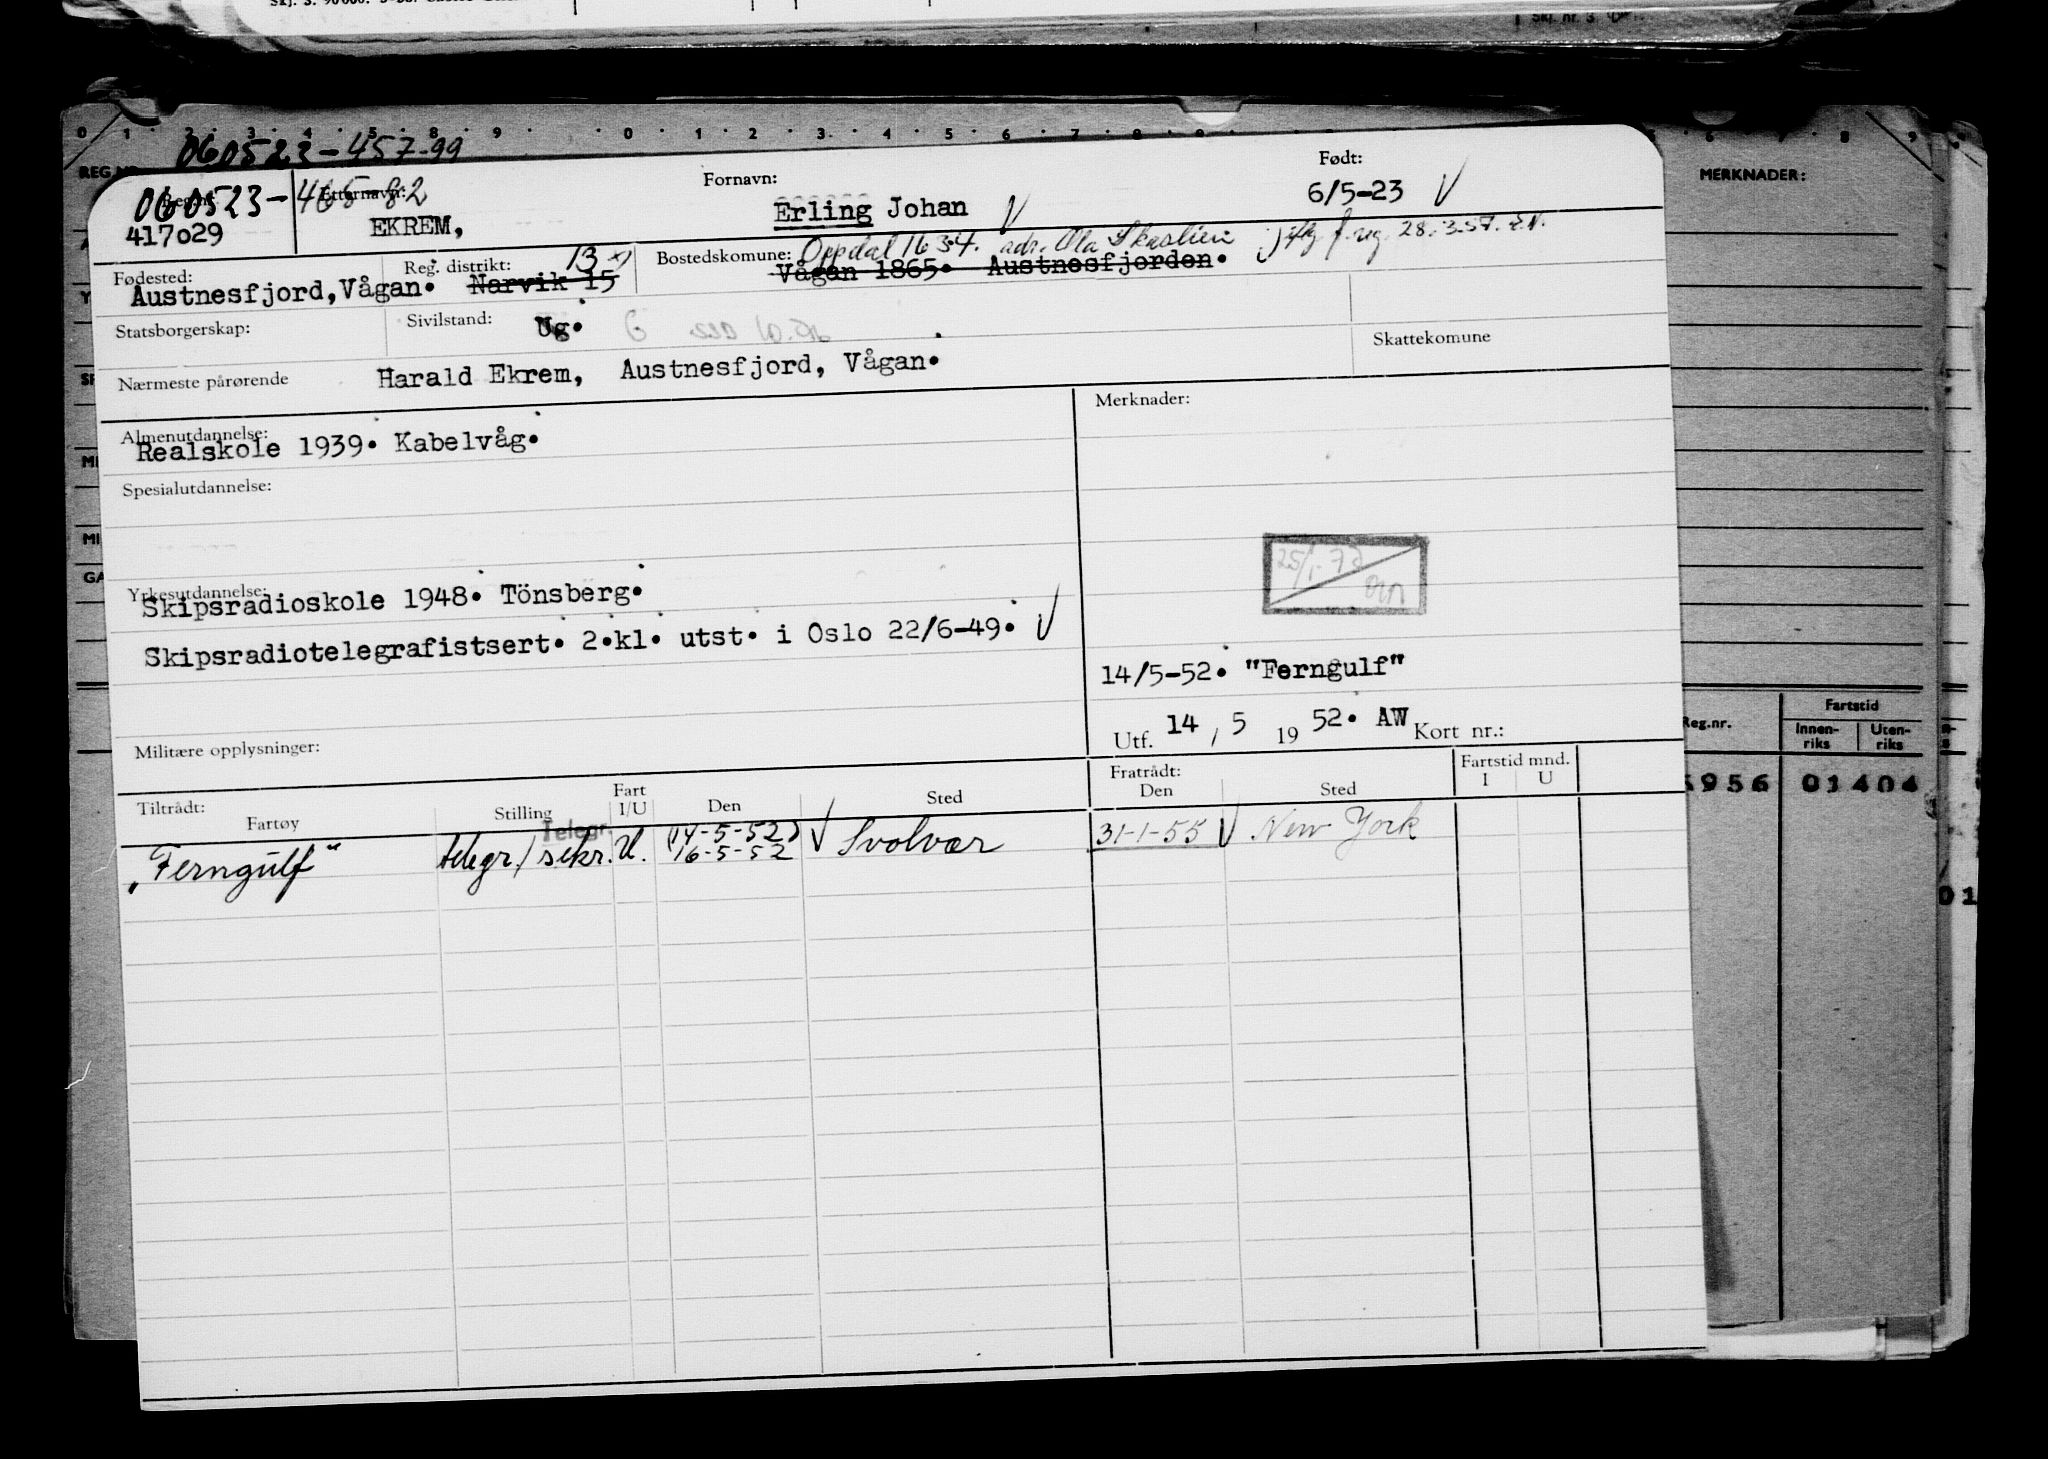 0 1 2 3 4 5 8 9 0 1 2 3 4 5 6 7 8 9
060523-457-99
REG.NR.
MERKNADER:
Reg.nr.: Etternavn: Fornavn: Født:
060523-465-82
417029 EKREM, Erling Johan 6/5-23
Fødested: Reg. distrikt: 13 Bostedskomune: Oppdal 1634. adr. Ola Skaslien 28.3.57.
Austnesfjord, Vågan. Narvik 15 Vågan 1865. Austnesfjorden.
Statsborgerskap: Sivilstand: Ug. Skattekomune
Nærmeste pårørende Harald Ekrem, Austnesfjord, Vågan.
Almenutdannelse: Merknader:
Realskole 1939. Kabelvåg.
Spesialutdannelse:
25/1-72
Yrkesutdannelse:
Skipsradioskole 1948. Tönsberg.
Skipsradiotelegrafistsert. 2.kl. utst. i Oslo 22/6-49.
14/5-52. "Ferngulf"
Utf. 14, 5 19 52. AW Kort nr.:
Militære opplysninger:
Reg.nr. Fartstid
Innen-riks Uten-riks
5956 01404
Tiltrådt: Fratrådt: Fartstid mnd.
Fartøy Stilling Fart I/U Den Sted Den Sted I U
Telegr. (14-5-52)
"Ferngulf" telegr./sekr. U. 16-5-52 Svolvær 31-1-55 New York
01